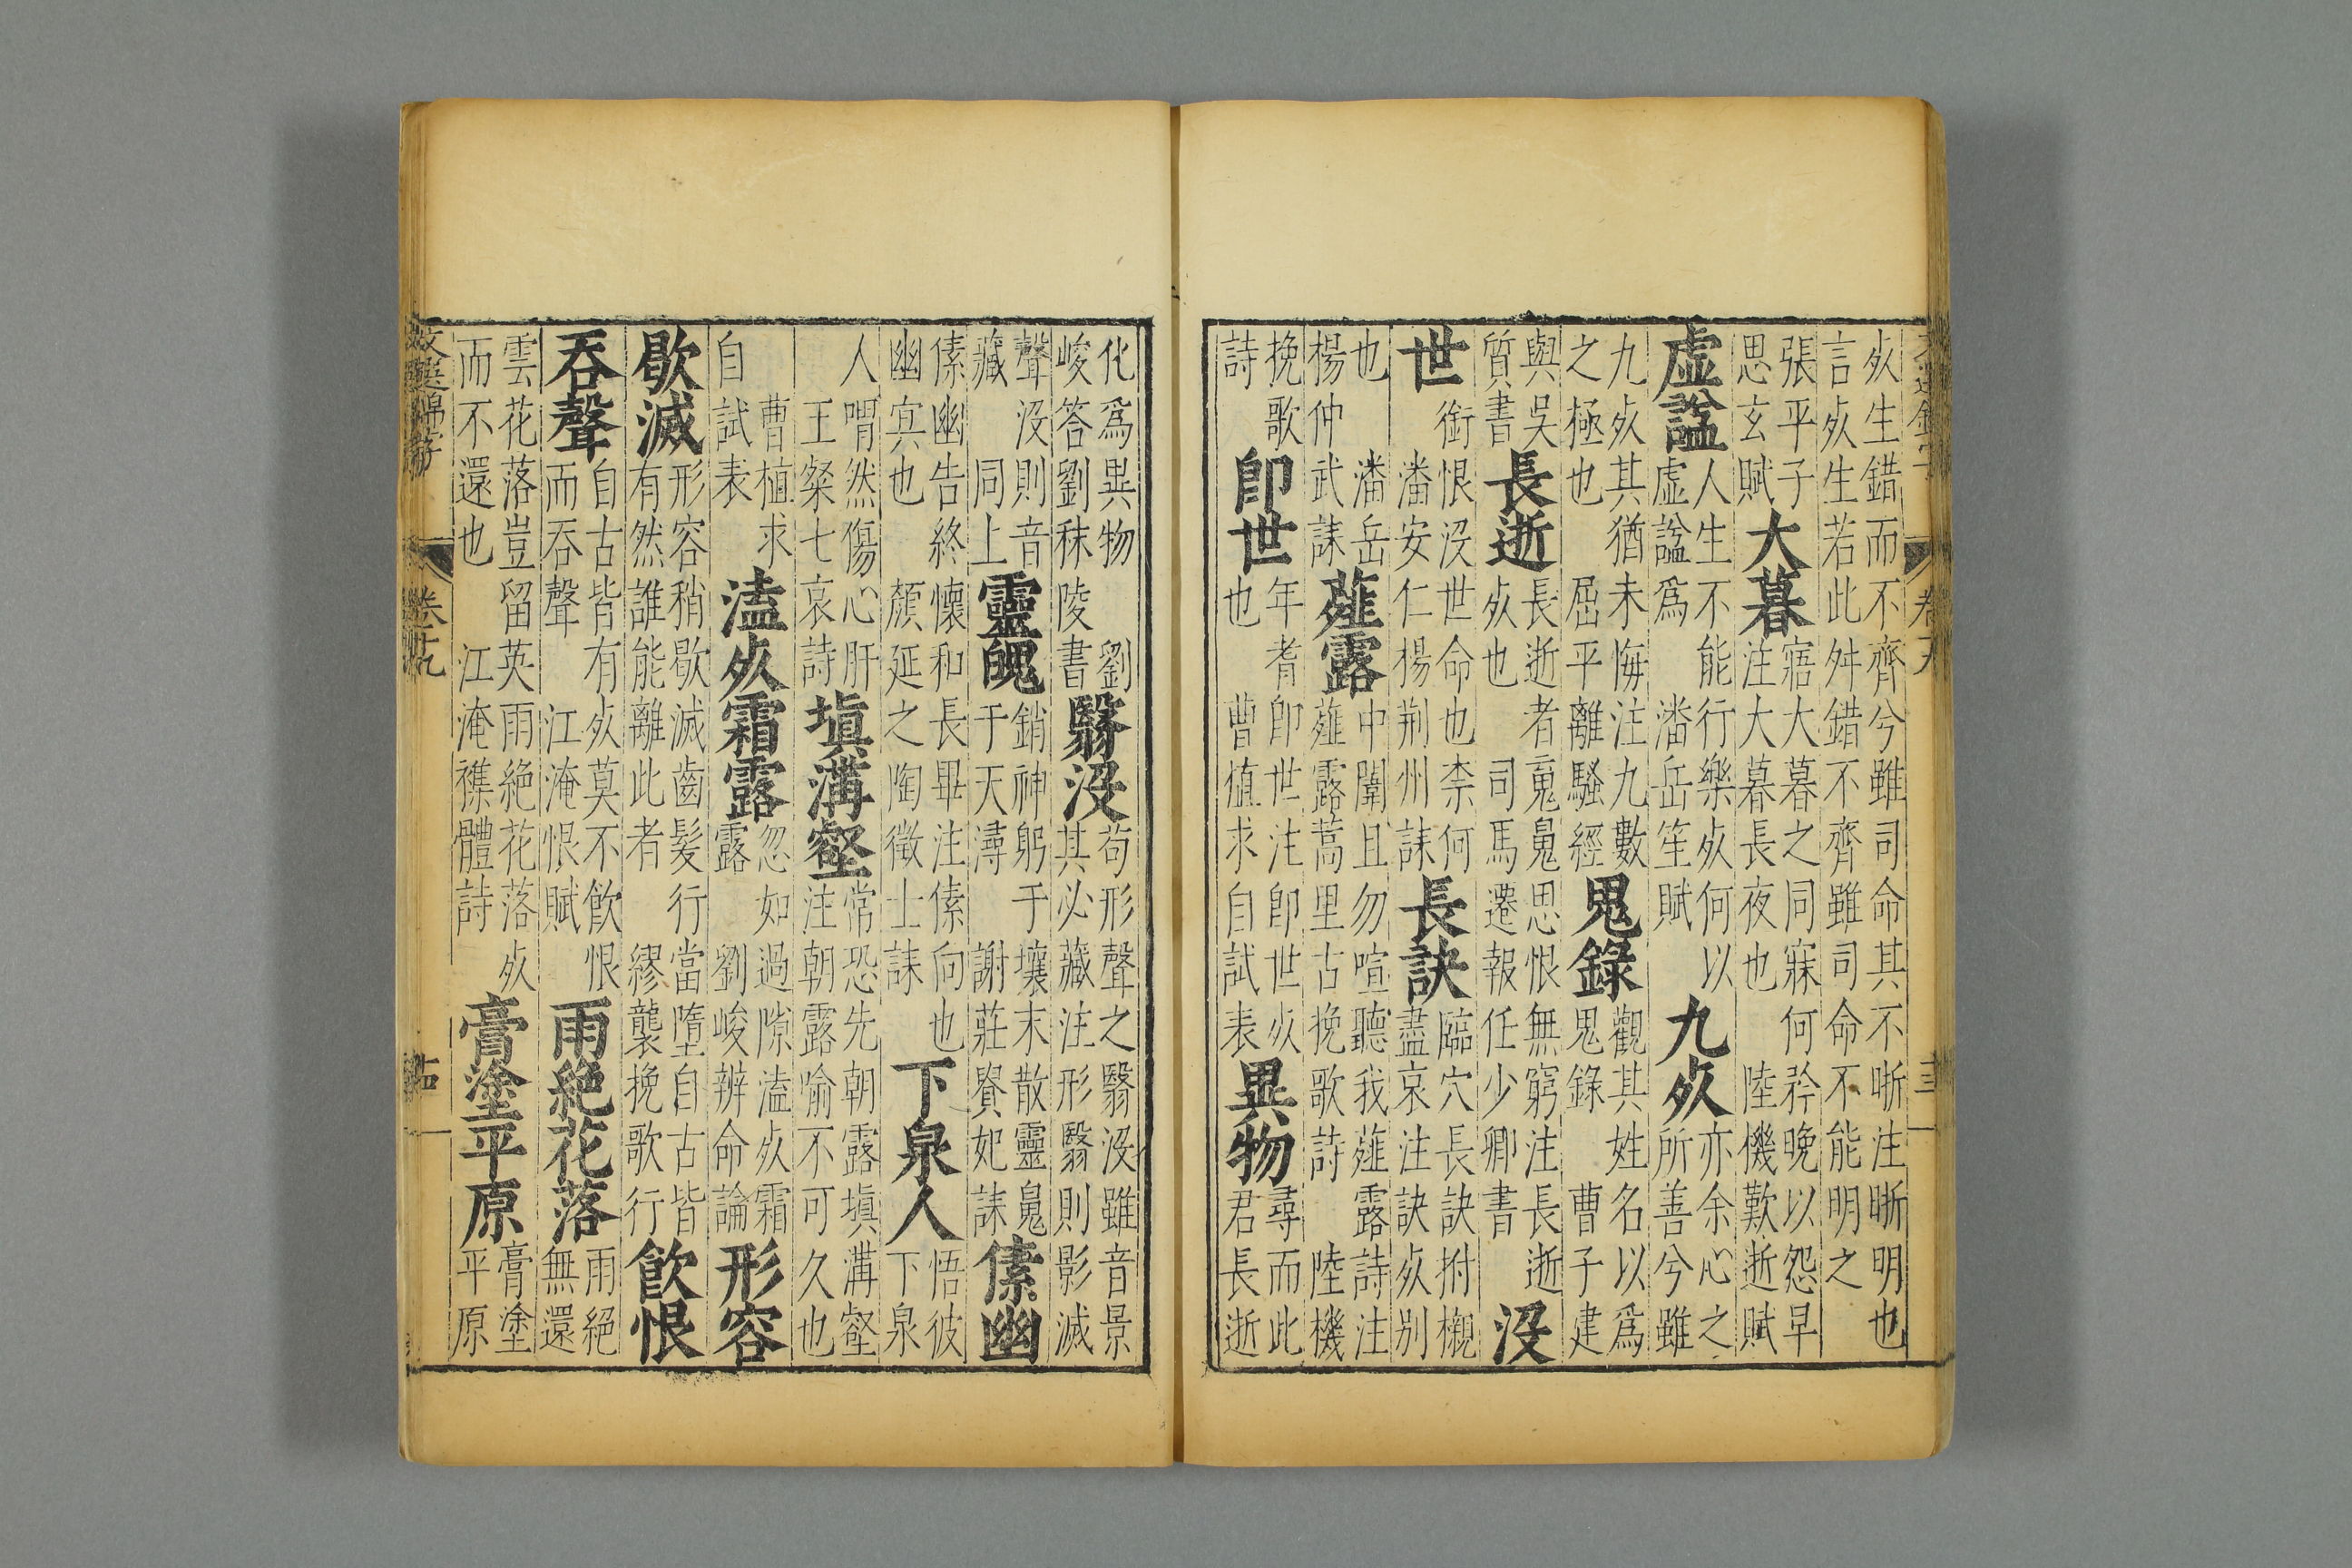 死生錯而不齊兮雖司命其不晣注晣明也
言死生若此舛錯不齊雖司命不能明之
張平子
思玄賦
大暮
寤大暮之同寐何矜晚以怨早
注大暮長夜也 陸機歎逝賦
虛諡
人生不能行樂死何以
虛諡爲 潘岳笙賦
九死
亦余心之
所善兮雖
九死其猶未悔注九數
之極也 屈平離騷經
鬼錄
觀其姓名以爲
鬼錄 曹子建
與吳
質書
長逝
長逝者䰟魄思恨無窮注長逝
死也 司馬遷報任少卿書
沒
世
銜恨沒世命也柰何
潘安仁楊荆州誄
長訣
臨穴長訣拊櫬
盡哀注訣死別
也 潘岳
楊仲武誄
薤露
中闈且勿喧聽我薤露詩注
薤露蒿里古挽歌詩 陸機
挽歌
詩
卽世
年耆卽世注卽世死
也 曹植求自試表
異物
尋而此
君長逝
化爲異物 劉
峻答劉秣陵書
翳沒
苟形聲之翳沒雖音景
其必藏注形翳則影滅
聲沒則音
藏 同上
靈䰟
銷神躬于壤末散靈䰟
于天潯 謝莊貴妃誄
傃幽
傃幽告終懷和長畢注傃向也
幽㝠也 顏延之陶徵士誄
下泉人
悟彼
下泉
人喟然傷心肝
王粲七哀詩
塡溝壑
常恐先朝露塡溝壑
注朝露喻不可久也
曹植求
自試表
溘死霜露
忽如過隙溘死霜
露 劉峻辨命論
形容
歇滅
形容稍歇滅齒髮行當墮自古皆
有然誰能離此者 繆襲挽歌行
飮恨
吞聲
自古皆有死莫不飮恨
而吞聲 江淹恨賦
雨絶花落
雨絶
無還
雲花落豈留英雨絶花落死
而不還也 江淹襍體詩
膏塗平原
膏塗
平原
文選錦字